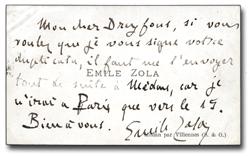 Mon cher Dreyfous, si vous
voulez que je vous signe votre
duplicata, il faut me l'envoyer
EMILE ZOLA
tout de suite à Médan, car je
n'irai à Paris que vers le 15.
Bien à vous.
Emile Zola
par Villennes (S. & O.)